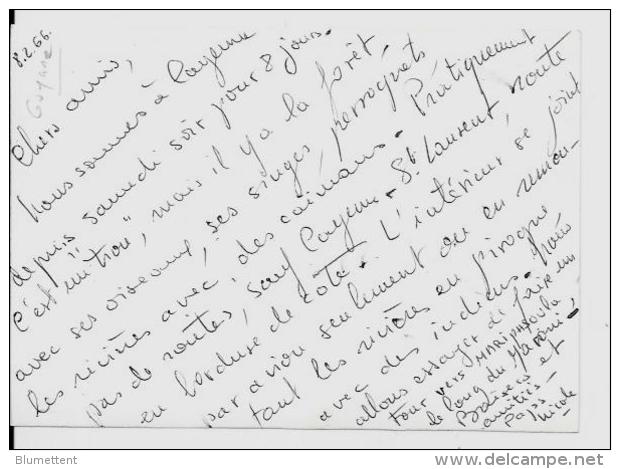 8.2.66.
Guyane
Chers amis,
Nous sommes à Cayenne
depuis samedi soir pour 8 jours.
C'est "mition", mais il y a la forêt
avec ses oiseaux, ses singes, perroquets
les rivières avec des caïmans. Pratiquement
pas de routes, sauf Cayenne - St Laurent, route
en bordure de côte. L'intérieur se joint
par avion seulement ou en remon-
tant les rivières en pirogue
avec des indiens. Nous
allons essayer de faire un
tour vers MARIPASOULA
le long du Maroni.
Baisers et
amitiés -
Nicole
Blumettent
www.delcampe.net